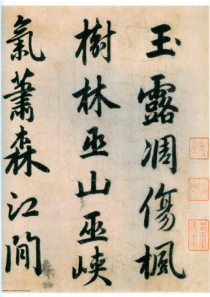 玉露凋傷楓
樹林巫山巫峡
氣蕭森江間